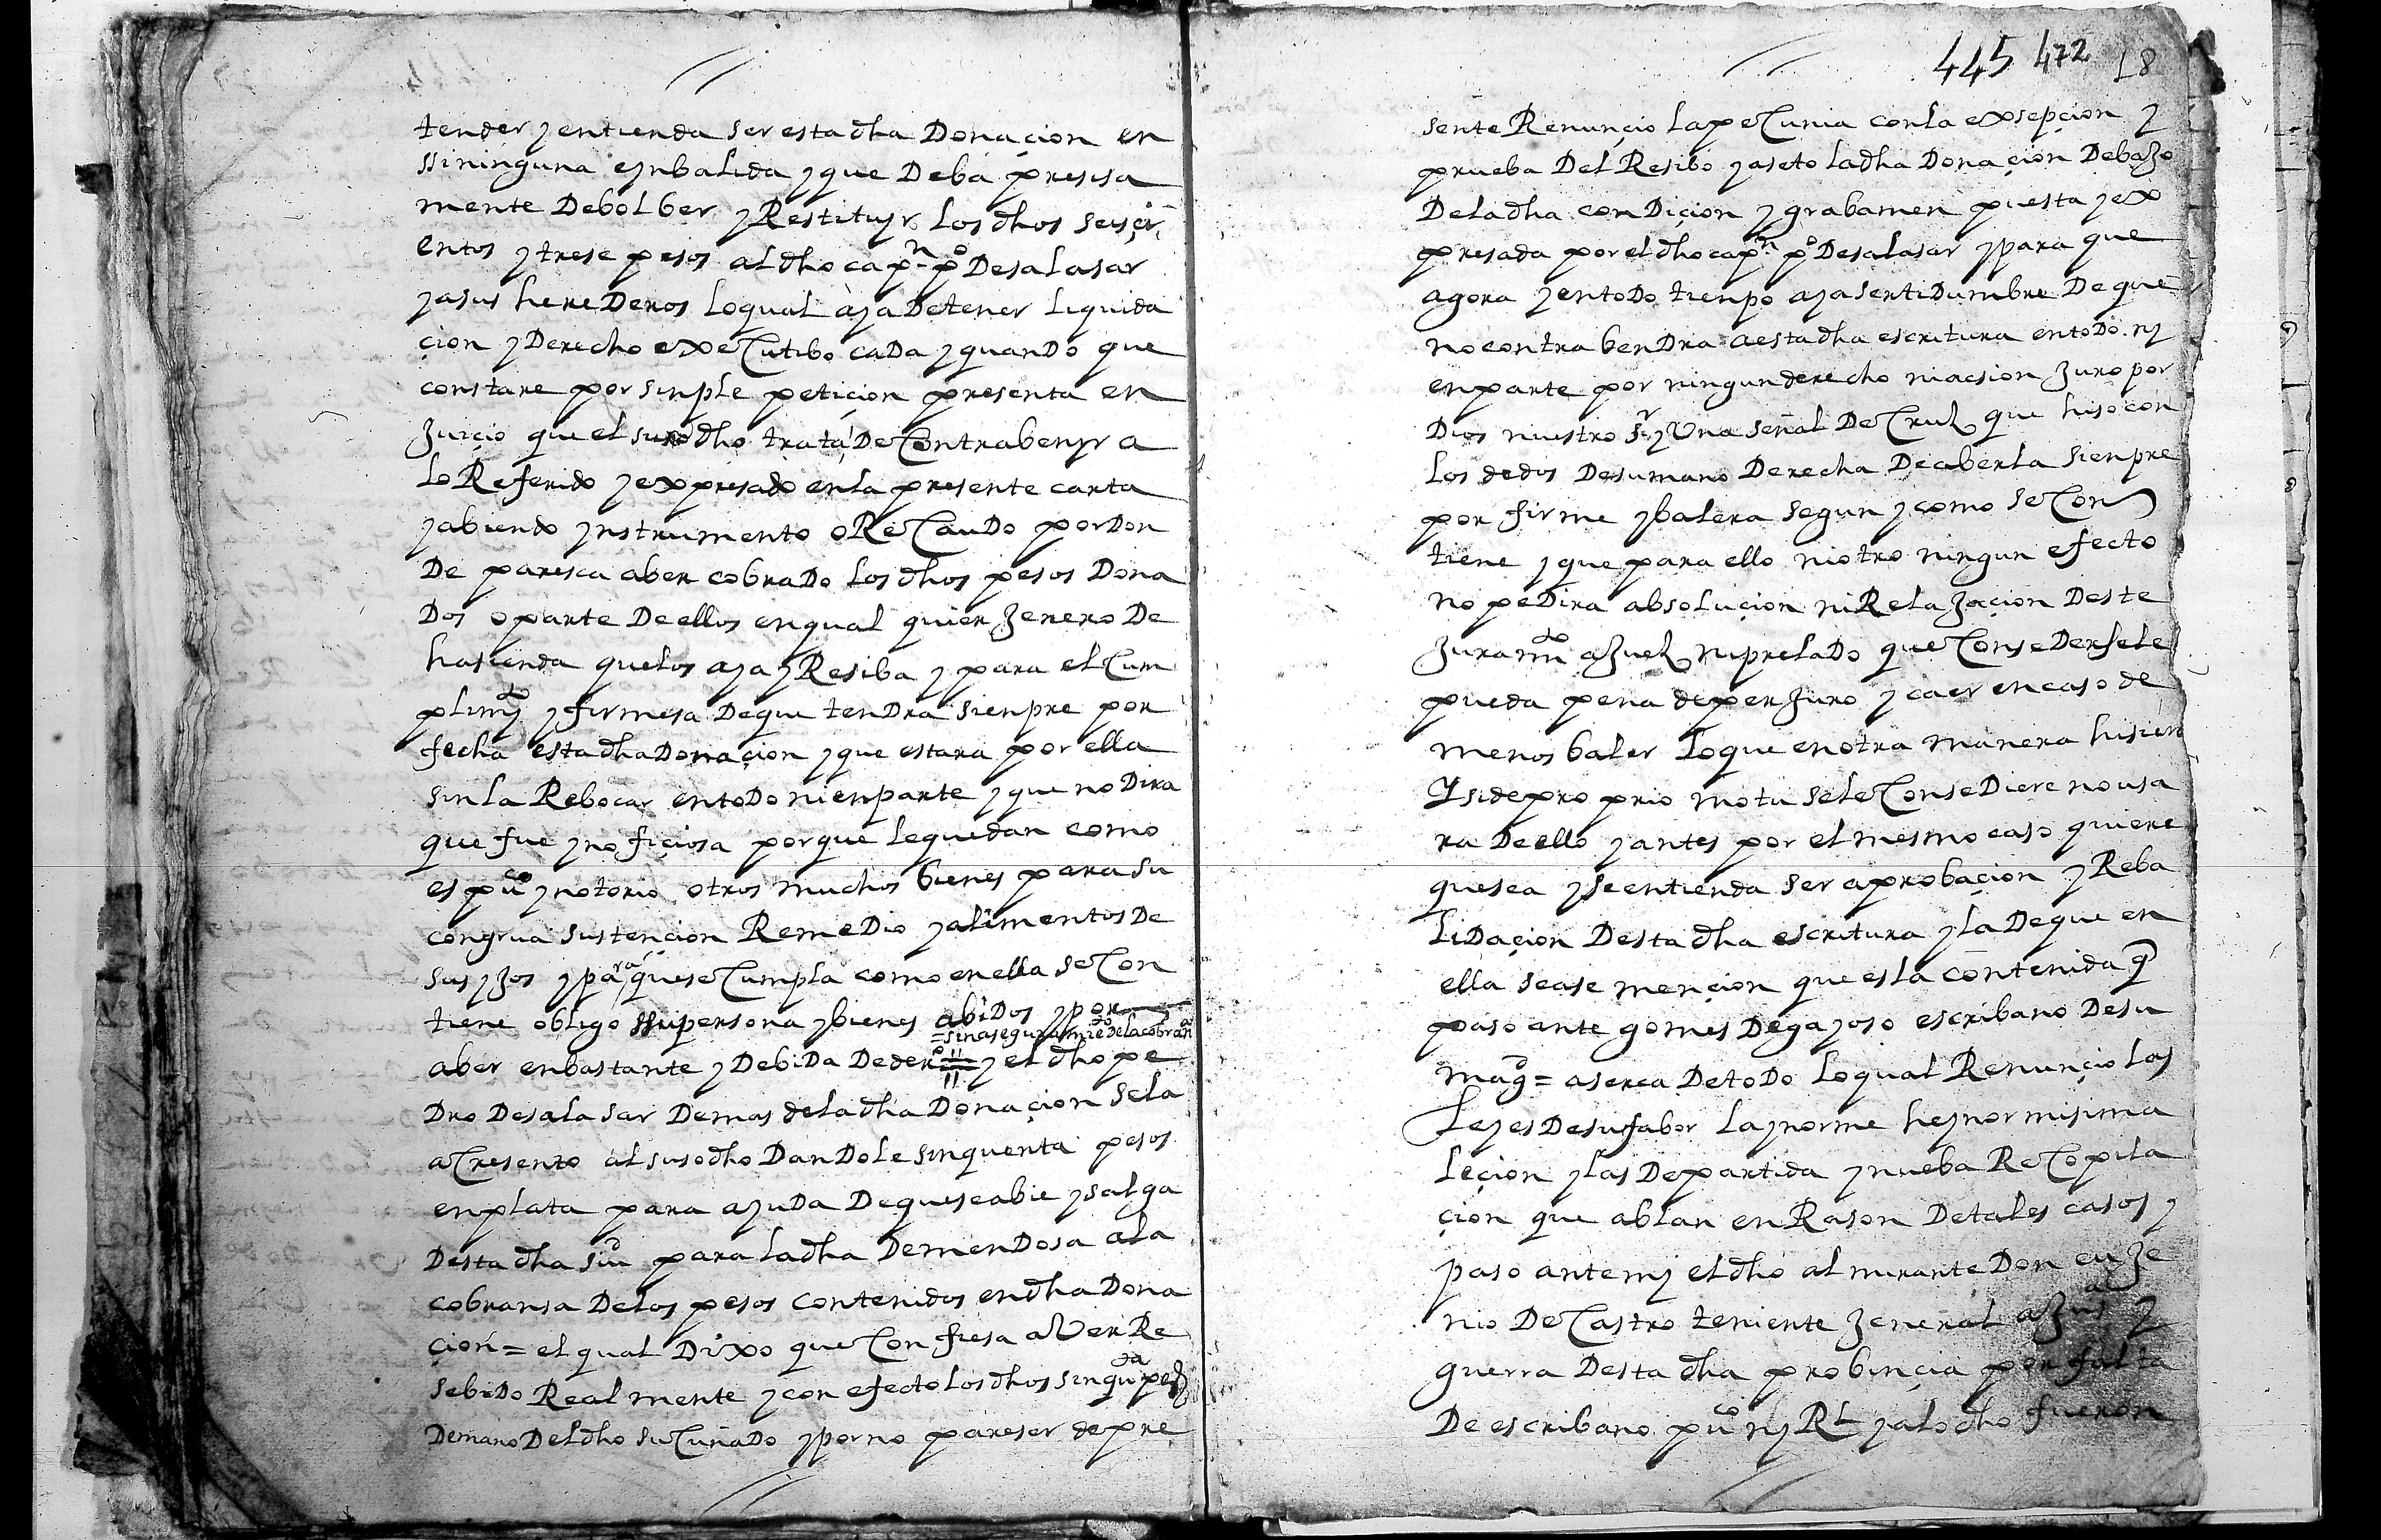 tender y entienda ser esta dha Donaçion en
ssi ninguna e ynbalida y que Deba presisa
mente Debolber y Restituyr los dhos seisçi
entos y trese pesos al dho capn po De salasar
y a sus herederos lo qual aya De tener liquida
çion y Derecho executibo cada y quando que
constare por sinple petiçion presenta en
Juiçio que el suso dho trata De contrabenyr a
lo Referido y expresado en la presente carta
y abiendo ynstrumento o Recaudo por don
De paresca aber cobrado los dhos pesos Dona
Dos o parte De ellos en qual quier Jenero De
hasienda que los aya y Resiba y para el cum
plimyto y firmesa De que tendra sienpre por
fecha esta dha Donaçion y que estara por ella
sin la Rebocar en todo ni en parte y que no Dira
que fue ynofiçiosa porque le quedan como
es puco y notorio otros muchos bienes para su
congrua sustençion Remedio y alimentos De
sus yjos y para que se cumpla como en ella se con
tiene obligo ssu persona y bienes abidos y por
=sin aseguramieto de la cobransa
aber en bastante y Debida De dero = y el dho pe
Dro De salasar Demas de la dha Donaçion se la
acresento al susodho Dandole sinquenta pesos
en plata para ayuda De que se abie y salga
Desta dha ciud para la dha De mendosa a la
cobransa De los pesos contenidos en dha Dona
çion = el qual Dixo que confiesa aver Re
sebido Real mente y con efecto los dhos sinquta pes
De mano Del dho su cuñado y por no pareser de pre
445 472 18
sente Renunçio la pecunia con la exsepçion y
prueba Del Resibo y aseto la dha Donaçion Debajo
De la dha condiçion y grabamen puesta y ex
presada por el dho capn po De salasar y para que
agora y en todo tienpo aya sertidumbre De que
no contrabendra a esta dha escritura en todo ny
en parte por ningun derecho ni acsion Juro por
Dios nuestro sr y Una señal De cruz que hiso con
los dedos De su mano Derecha De aberla sienpre
por firme y balera segun y como se con
tiene y que para ello ni otro ningun efecto
no pedira absoluçion ni Relajaçion Deste
Juramto a Juez ni prelado que consederse le
pueda pena de perjuro y caer en caso de
menos baler lo que en otra manera hisier
Y si de proprio motu se le consediere no usa
ra De ello y antes por el mesmo caso quiere
que sea y se entienda ser aprobaçion y Reba
lidaçion Desta dha escritura y la De que en
ella se ase mençion que es la contenida q
paso ante gomes De gayoso escribano De su
magd = aserca De todo lo qual Renunçio las
leyes De su fabor la ynorme he ynormisima
leçion y las De partida y nueba Recopila
çion que ablan en Rason De tales casos y
paso ante my el dho almirante Don euJe
nio De castro teniente Jeneral a Jusa y
guerra Desta dha probinçia por falta
De escribano puco ny Rl y a lo dho fueron